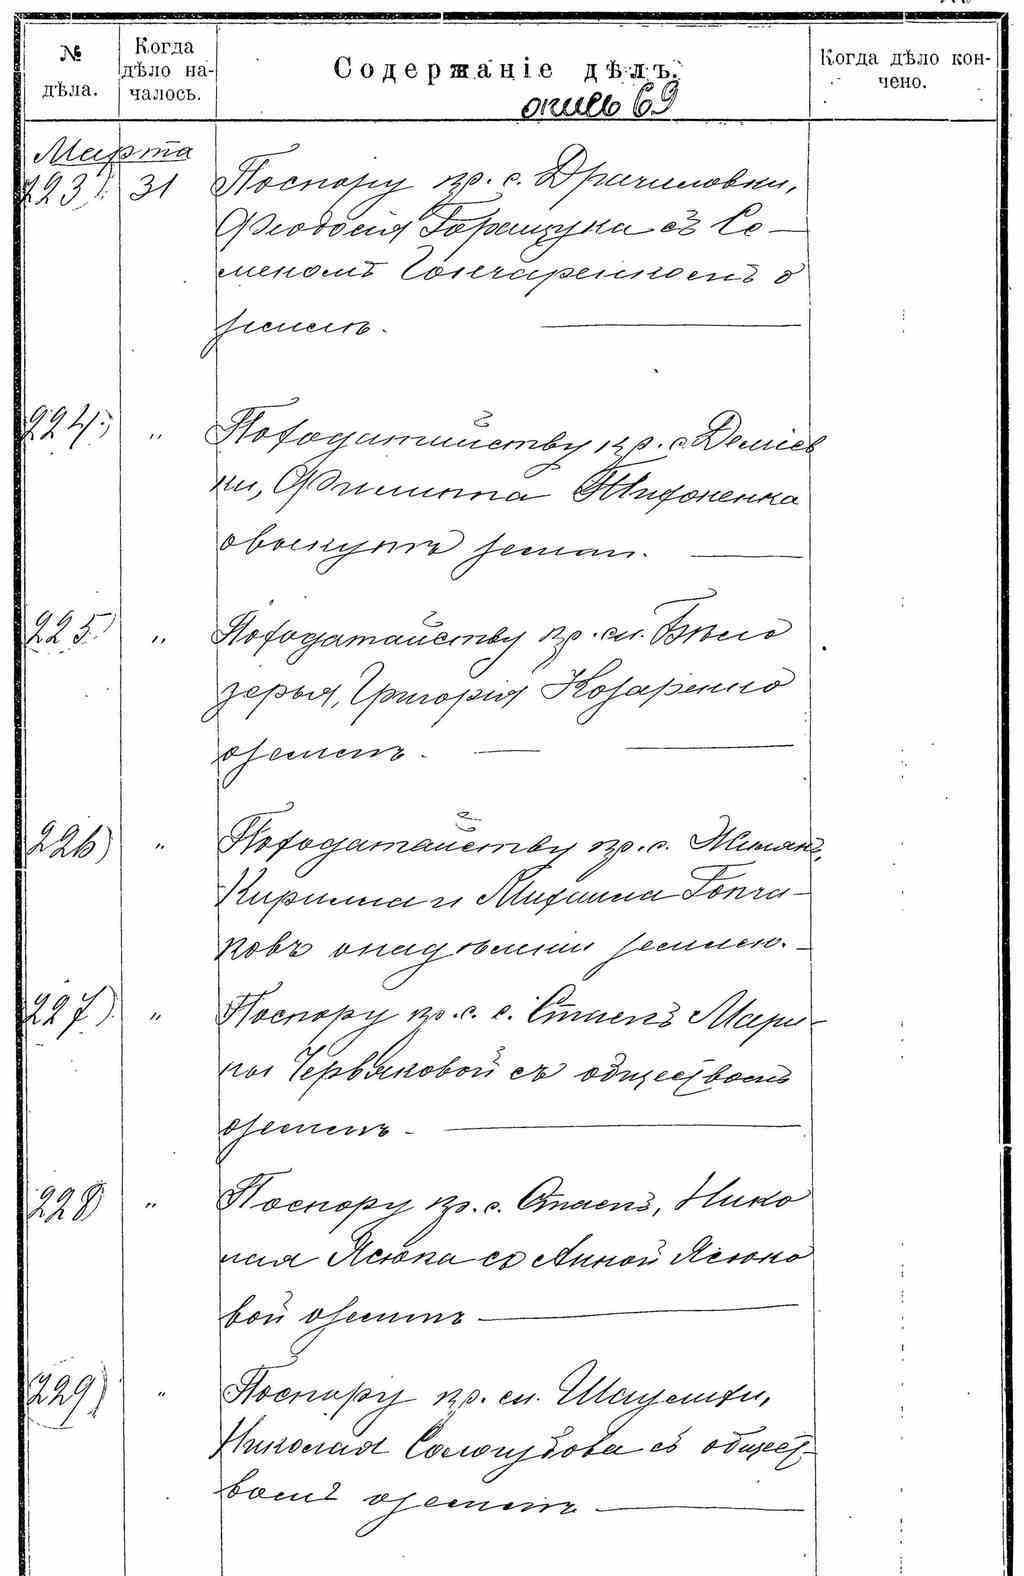 № дѣла.
Когда дѣло началось.
Содержаніе дѣлъ.
Когда дѣло кончено.
опись 69
Марта
223) 31 По спору кр. с. Драчиловки,
Феодосія Горащука съ Се-
меномъ Гончаренкомъ о
землѣ.
224) " По ходатайству кр. с. Деміев
ки, Филиппа Тихоненка
о выкупѣ земли.
225) " По ходатайству кр. м. Бѣло
зерья, Григорія Козаренко
о землѣ.
226) " По ходатайству кр. с. Жилянъ,
Кирилла и Михаила Гонча-
ковъ о надѣленіи землею.
227) " По спору кр. с. с. Стаекъ Мари-
ны Червяковой съ обществомъ
о землѣ.
228) " По спору кр. с. Стаекъ, Нико
лая Ясюка со Анной Ясюко
вой о землѣ
229) " По спору кр. м. Шаулихи,
Николая съ общест-
вомъ о землѣ